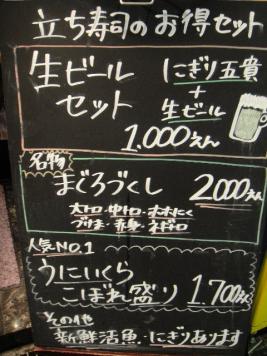 立ち寿司のお得セット
生ビール
セット
にぎり五貫
+
生ビール
1,000えん
名物
まぐろづくし
2,000えん
大トロ・中トロ・ホホにく
づけ・赤身・ネギトロ
人気NO.1
うにいくら
こぼれ盛り
1,700えん
その他
新鮮活魚・にぎりあります